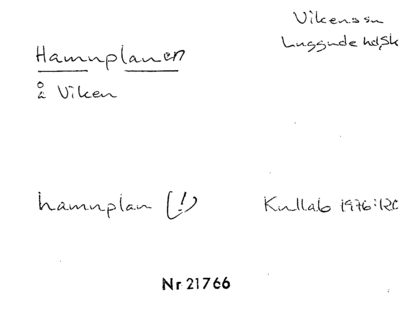 Vikens sn
Luggude hd, Sk
Hamnplanen
å Viken
hamnplan (!)
Kullab 1976:120
Nr 21766